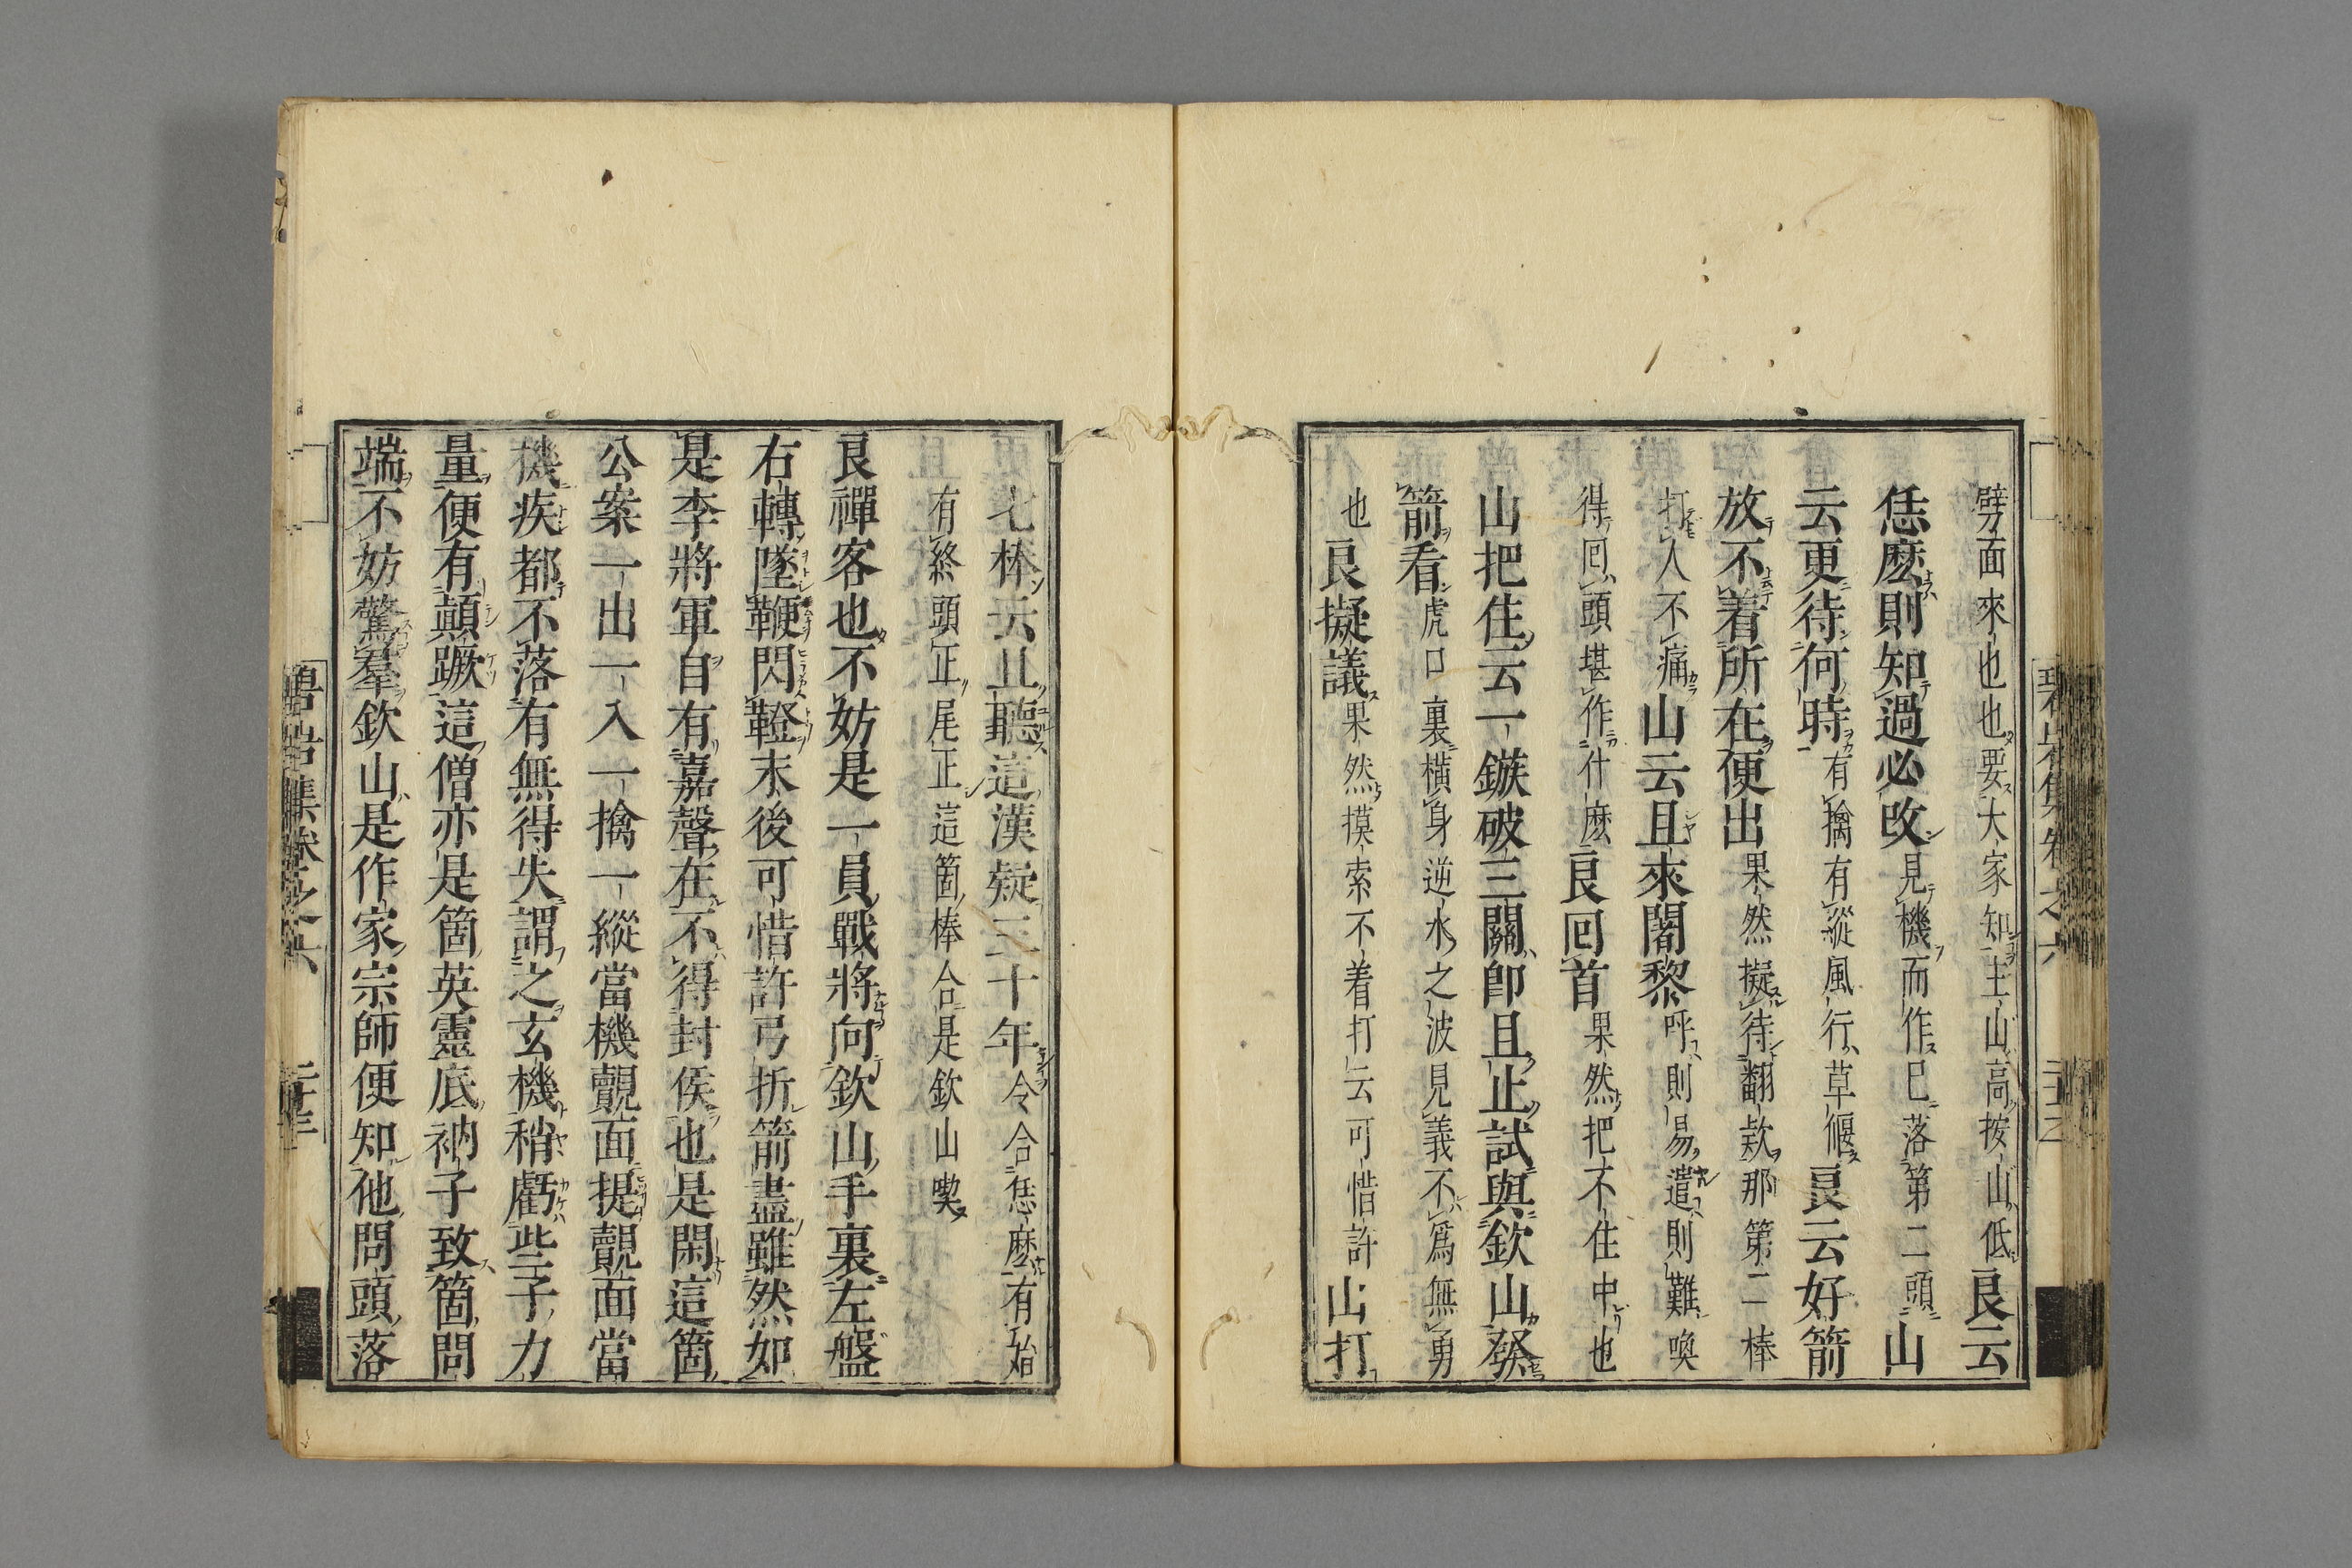 劈面來也也要大家知主山高按山低良云
恁麽則知過必改見機而作已落第二頭山
云更待何時有擒有縱風行草偃良云好箭
放不着所在便出果然擬待翻欵那第二棒
打人不痛山云且來闍黎呼則易遣則難喚
得回頭堪作什麽良回首果然把不住中也
山把住云一鏃破三關即且止試與欽山發
箭看虎口裏橫身逆水之波見義不爲無勇
也良擬議果然摸索不着打云可惜許山打
七棒云且聽這漢疑三十年令合恁麽有始
有終頭正尾正這箇棒合是欽山喫
良禪客也不妨是一員戰將向欽山手裏左盤
右轉墜鞭閃鐙末後可惜許弓折箭盡雖然如
是李將軍自有嘉聲在不得封侯也是閑這箇
公案一出一入一擒一縱當機覿面提覿面當
機疾都不落有無得失謂之玄機稍虧些子力
量便有顛蹶這僧亦是箇英靈底衲子致箇問
端不妨驚羣欽山是作家宗師便知他問頭落
碧岩集卷之六